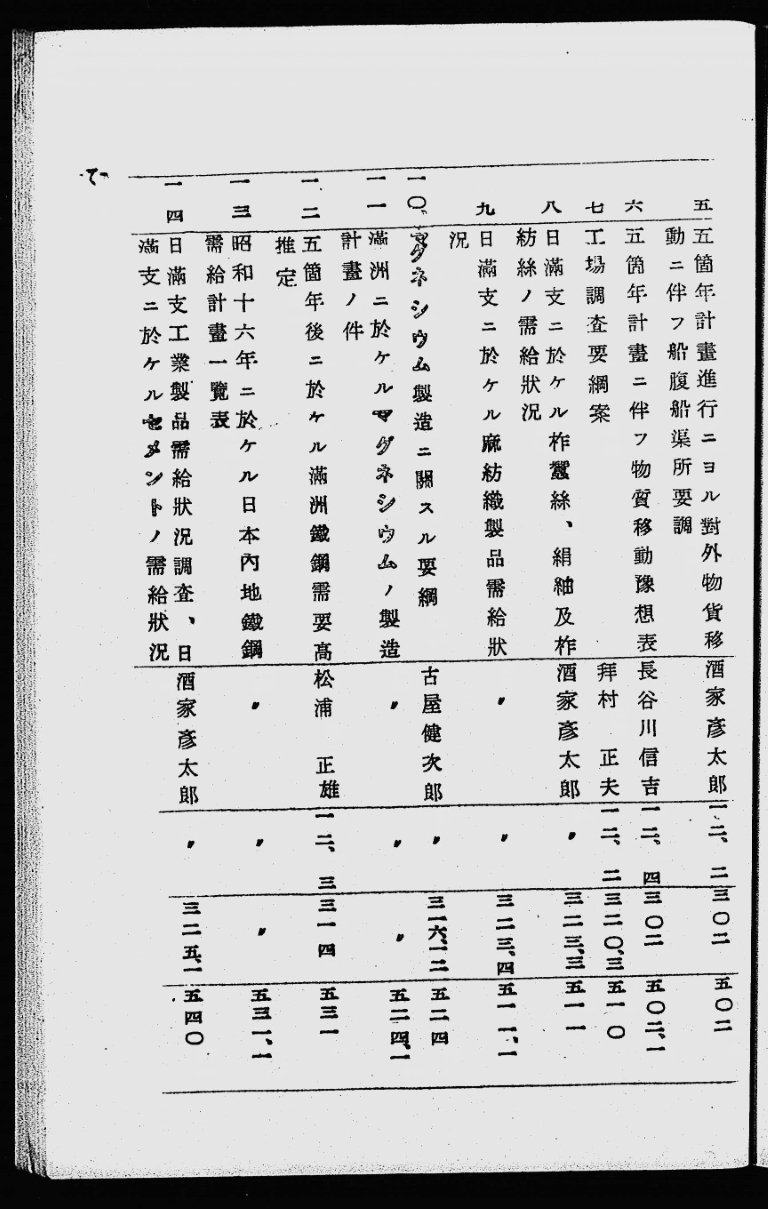 五 五箇年計畫進行ニヨル對外物貨移 酒家彥太郎 一二、二 三〇二 五〇二
動ニ伴フ船腹船渠所要調
六 五箇年計畫ニ伴フ物質移動豫想表 長谷川信吉 一二、四 三〇二 五〇二、一
七 工場調査要綱案 拜村 正夫 一二、二 三二〇、三 五一〇
八 日滿支ニ於ケル柞蠶絲、絹紬及柞 酒家彥太郎 〃 三二三、三 五一一
紡絲ノ需給狀況
九 日滿支ニ於ケル麻紡織製品需給狀 〃 〃 三二三、四 五一一、一
況
一〇、マグネシウム製造ニ關スル要綱 古屋健次郎 〃 三一六、一二 五二四
一一 滿洲ニ於ケルマグネシウムノ製造 〃 〃 〃 五二四、一
計畫ノ件
一二 五箇年後ニ於ケル滿洲鐵鋼需要高 松浦 正雄 一二、三 三一四 五三一
推定
一三 昭和十六年ニ於ケル日本內地鐵鋼 〃 〃 〃 五三一、一
需給計畫一覽表
一四 日滿支工業製品需給狀況調査、日 酒家彥太郎 〃 三二五、一 五四〇
滿支ニ於ケルセメントノ需給狀況